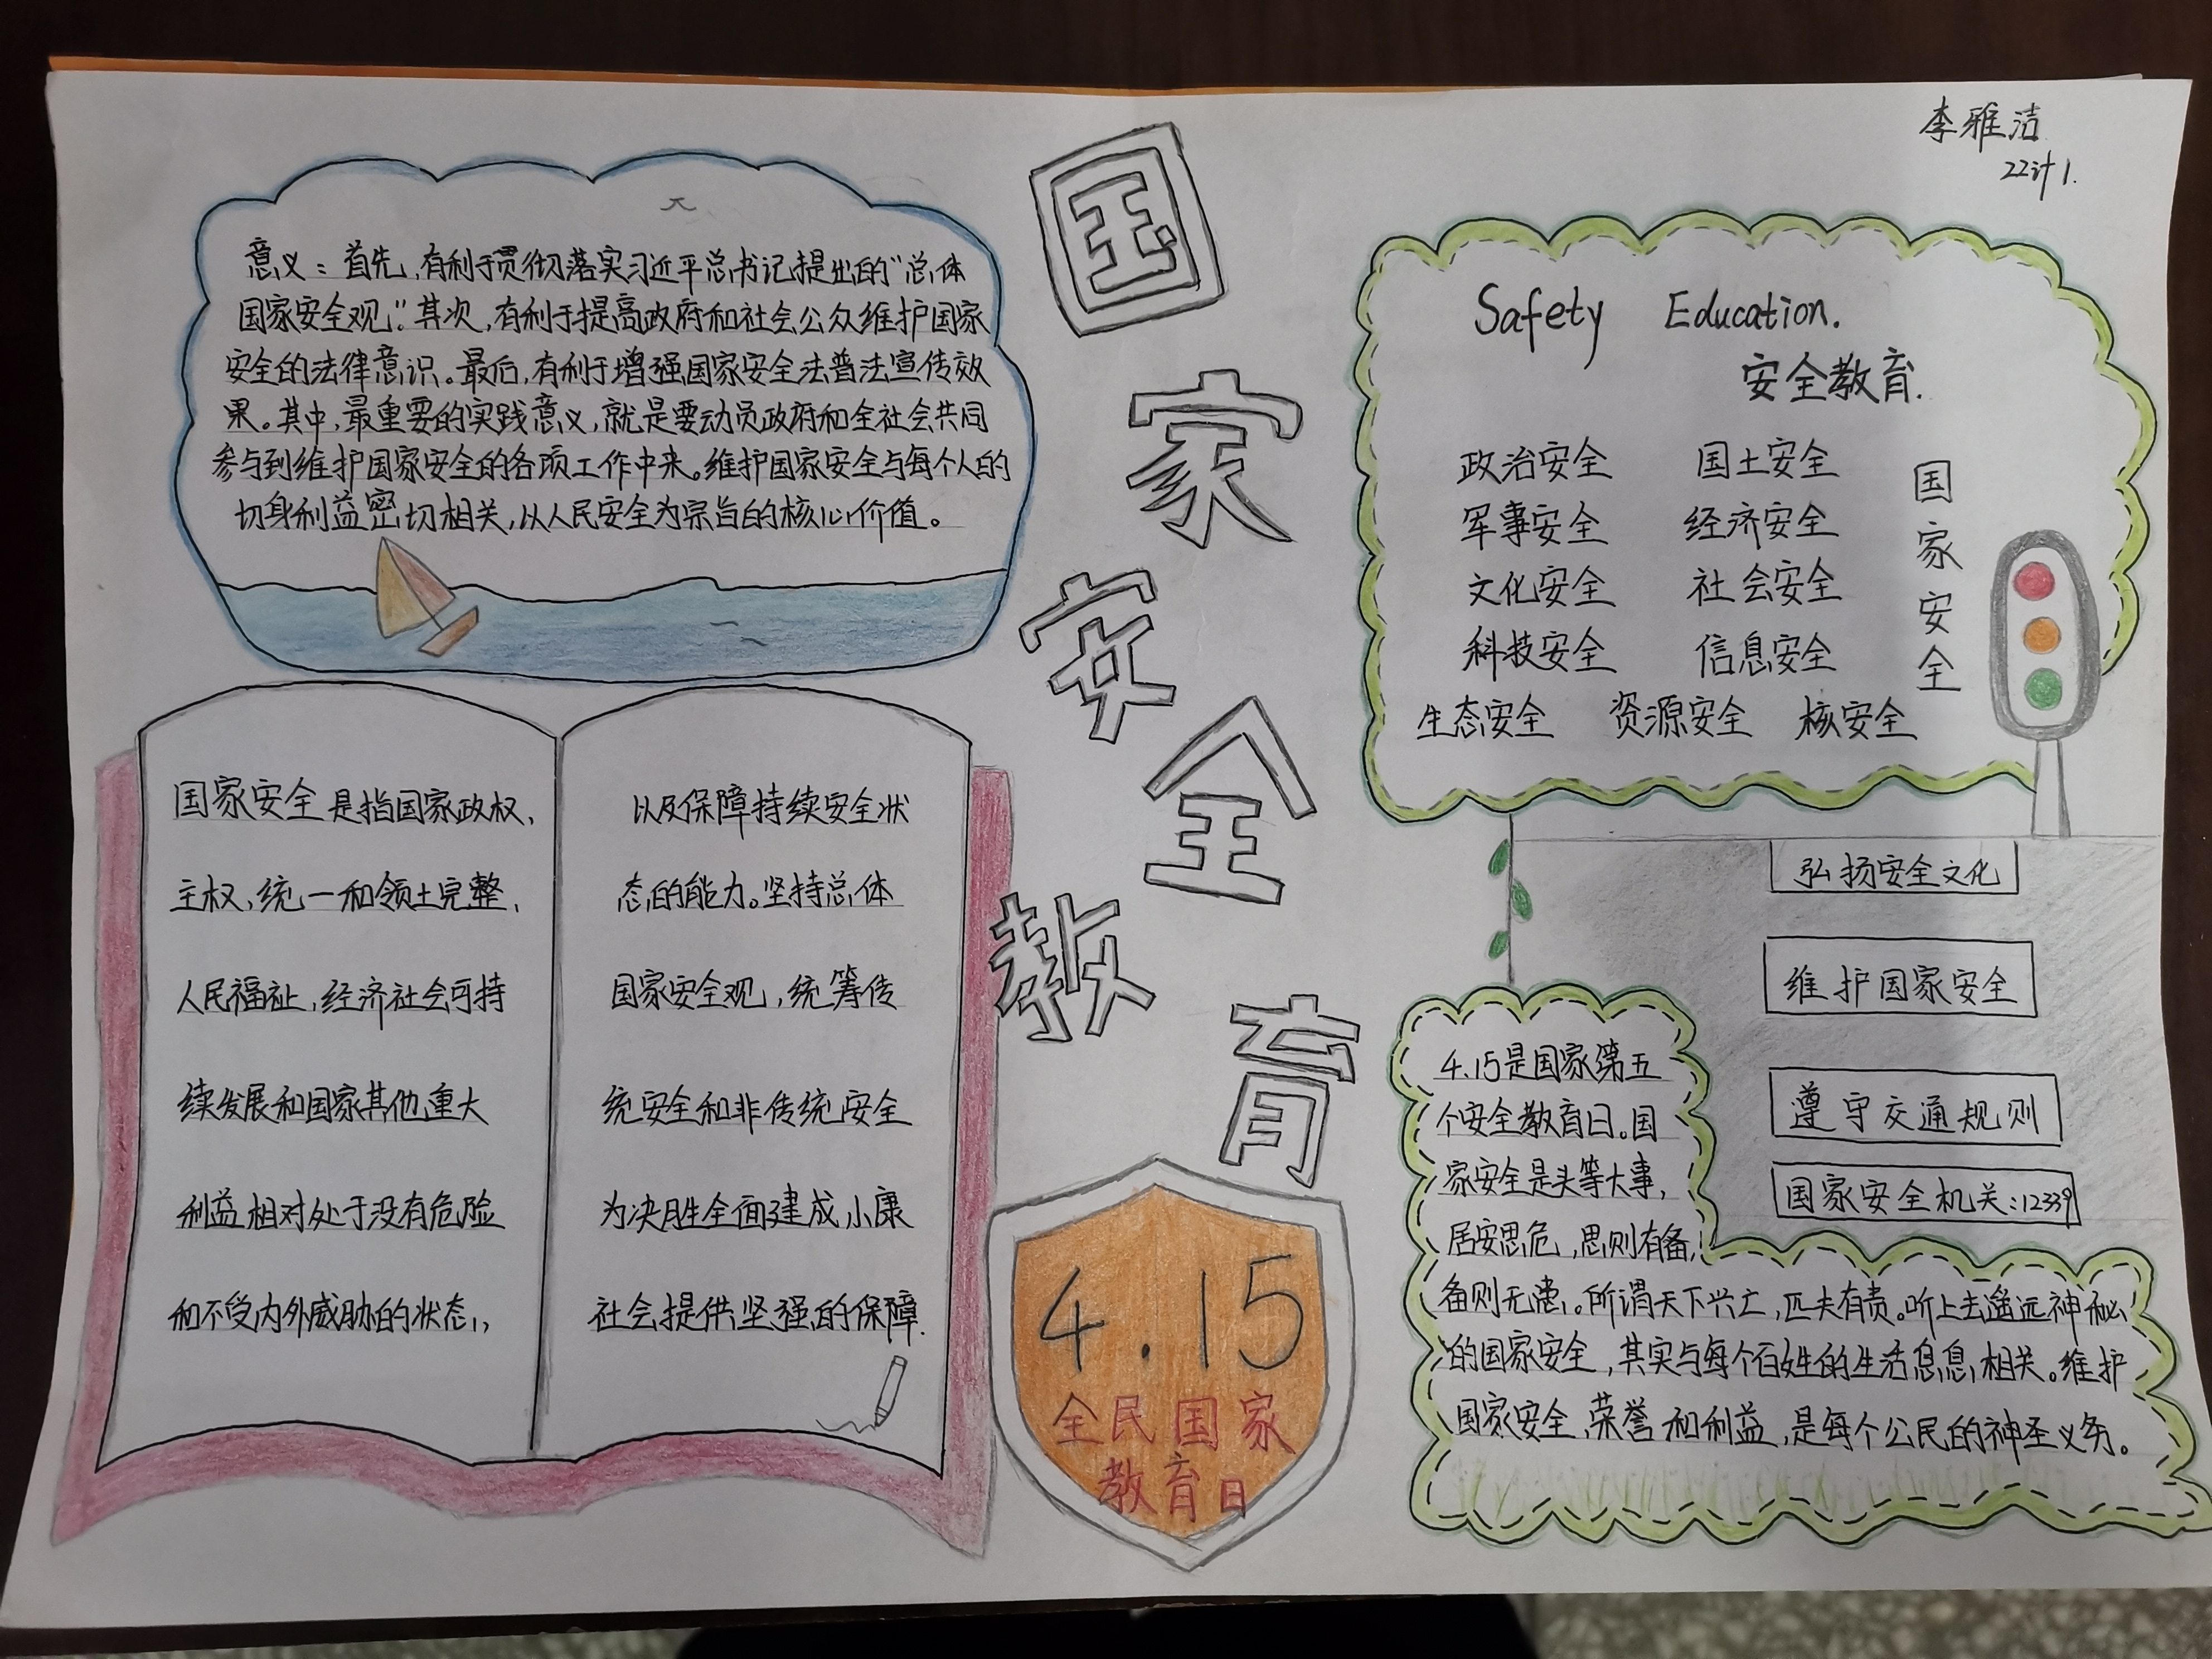 李雅洁
22计1.
国
家
安
全
教
育
意义：首先，有利于贯彻落实习近平总书记提出的“总体
国家安全观”。其次，有利于提高政府和社会公众维护国家
安全的法律意识。最后，有利于增强国家安全法普法宣传效
果。其中，最重要的实践意义，就是要动员政府和全社会共同
参与到维护国家安全的各项工作中来。维护国家安全与每个人的
切身利益密切相关，以人民安全为宗旨的核心价值。
国家安全是指国家政权、
主权、统一和领土完整、
人民福祉，经济社会可持
续发展和国家其他重大
利益相对处于没有危险
和不受内外威胁的状态，
以及保障持续安全状
态的能力。坚持总体
国家安全观，统筹传
统安全和非传统安全
为决胜全面建成小康
社会提供坚强的保障.
4.15
全民国家
教育日
Safety Education.
安全教育.
政治安全 国土安全
军事安全 经济安全
文化安全 社会安全
科技安全 信息安全
生态安全 资源安全 核安全
国
家
安
全
弘扬安全文化
维护国家安全
遵守交通规则
国家安全机关：12339
4.15是国家第五
个安全教育日。国
家安全是头等大事，
居安思危，思则有备，
备则无患。所谓天下兴亡，匹夫有责。听上去遥远神秘
的国家安全，其实与每个百姓的生活息息相关。维护
国家安全、荣誉和利益，是每个公民的神圣义务。